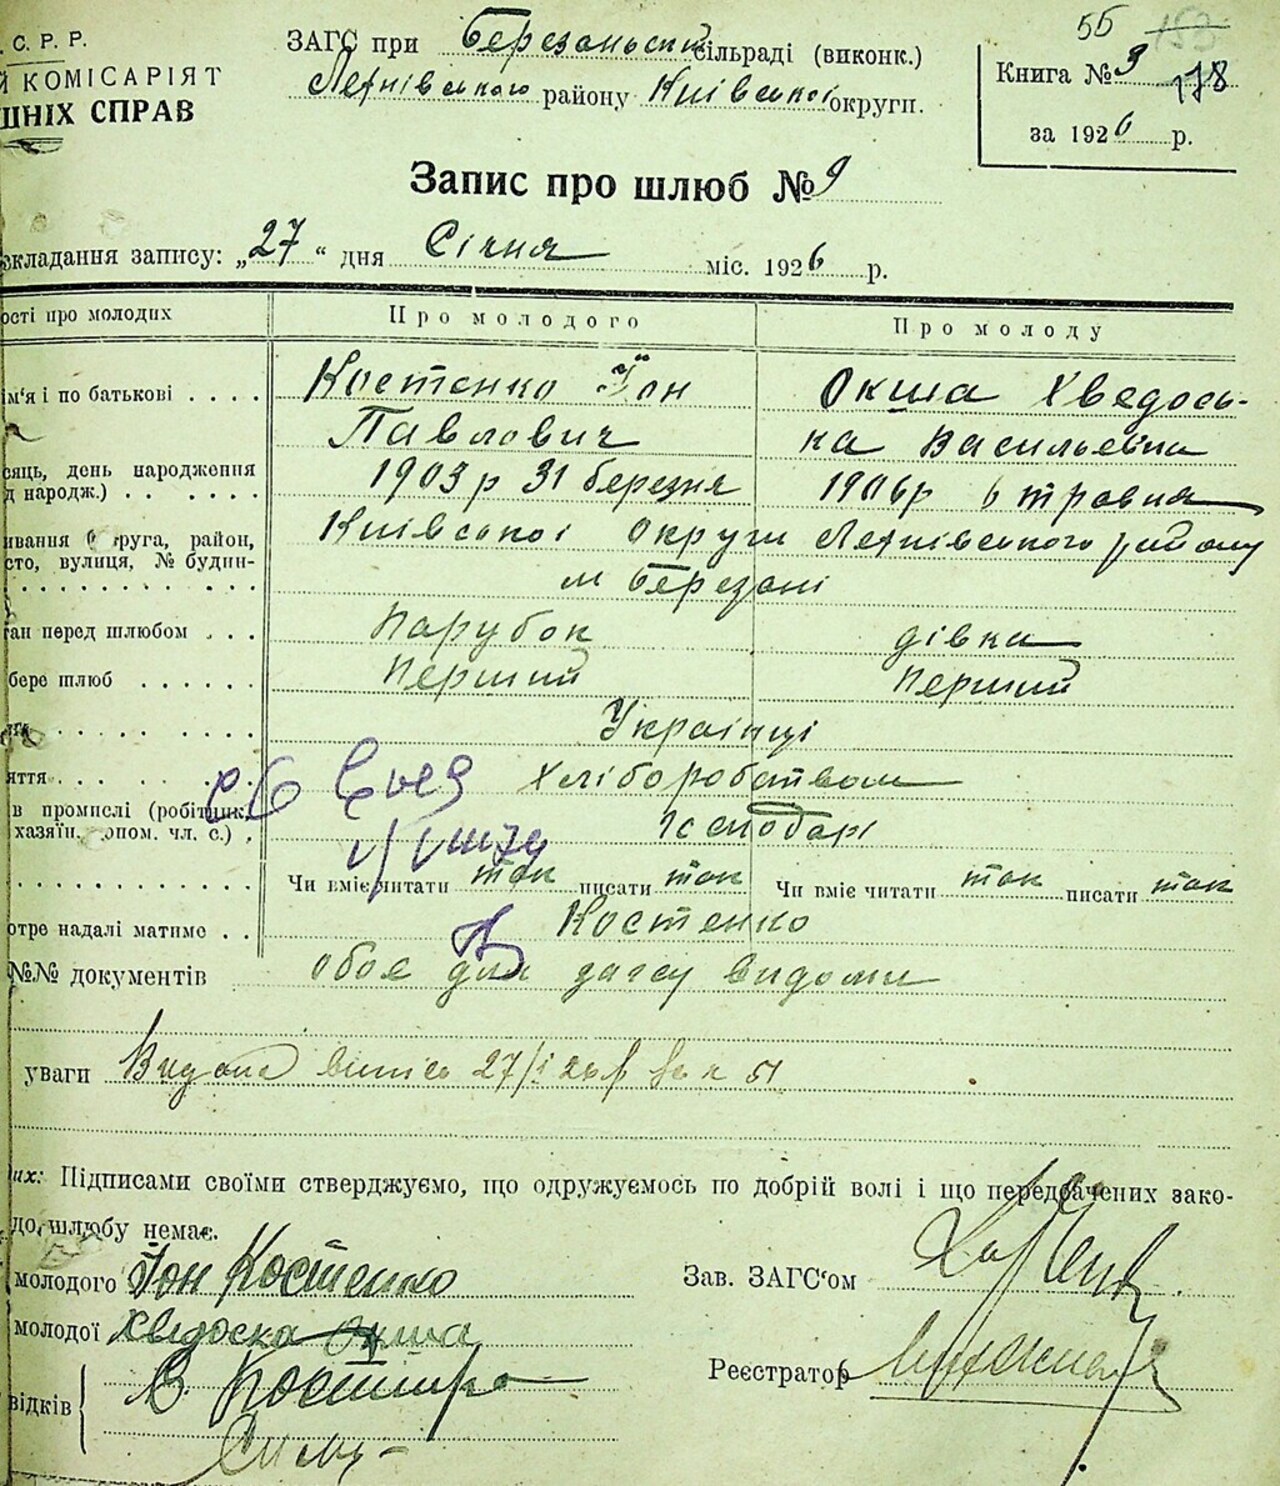 . С. Р. Р.
Й КОМІСАРІЯТ
ШНІХ СПРАВ
ЗАГС при Березанський сільраді (виконк.)
району Київської округи.
55 153
Книга № 3 178
за 1926 р.
Запис про шлюб № 9
складання запису: „27“ дня Січня міс. 1926 р.
ості про молодих Про молодого Про молоду
ім'я і по батькові . . . . Костенко Йон Окша Хведось-
Павлович ка Васильевна
сяць, день народження
д народж.) . . . . . . 1903 р 31 березня 1906 р 6 травня
ивання (Округа, район,
сто, вулиця, № будин- Київської округи району
м Березані
тан перед шлюбом . . . Парубок дівка
бере шлюб . . . . . . Перший Перший
Українці
яття . . . Хліборобством
в промислі (робітник,
хазяїн, допом. чл. с.) . Господарі
Чи вміє читати так писати так Чи вміє читати так писати так
отре надалі матиме . . Костенко
№№ документів обоє для загсу видоми
уваги Видана 27/I
их: Підписами своїми стверджуємо, що одружуємось по добрій волі і що передбачених зако-
до шлюбу немає.
молодого Йон Костенко
молодої Хведоска Окша
Зав. ЗАГС'ом
Реєстратор
відків